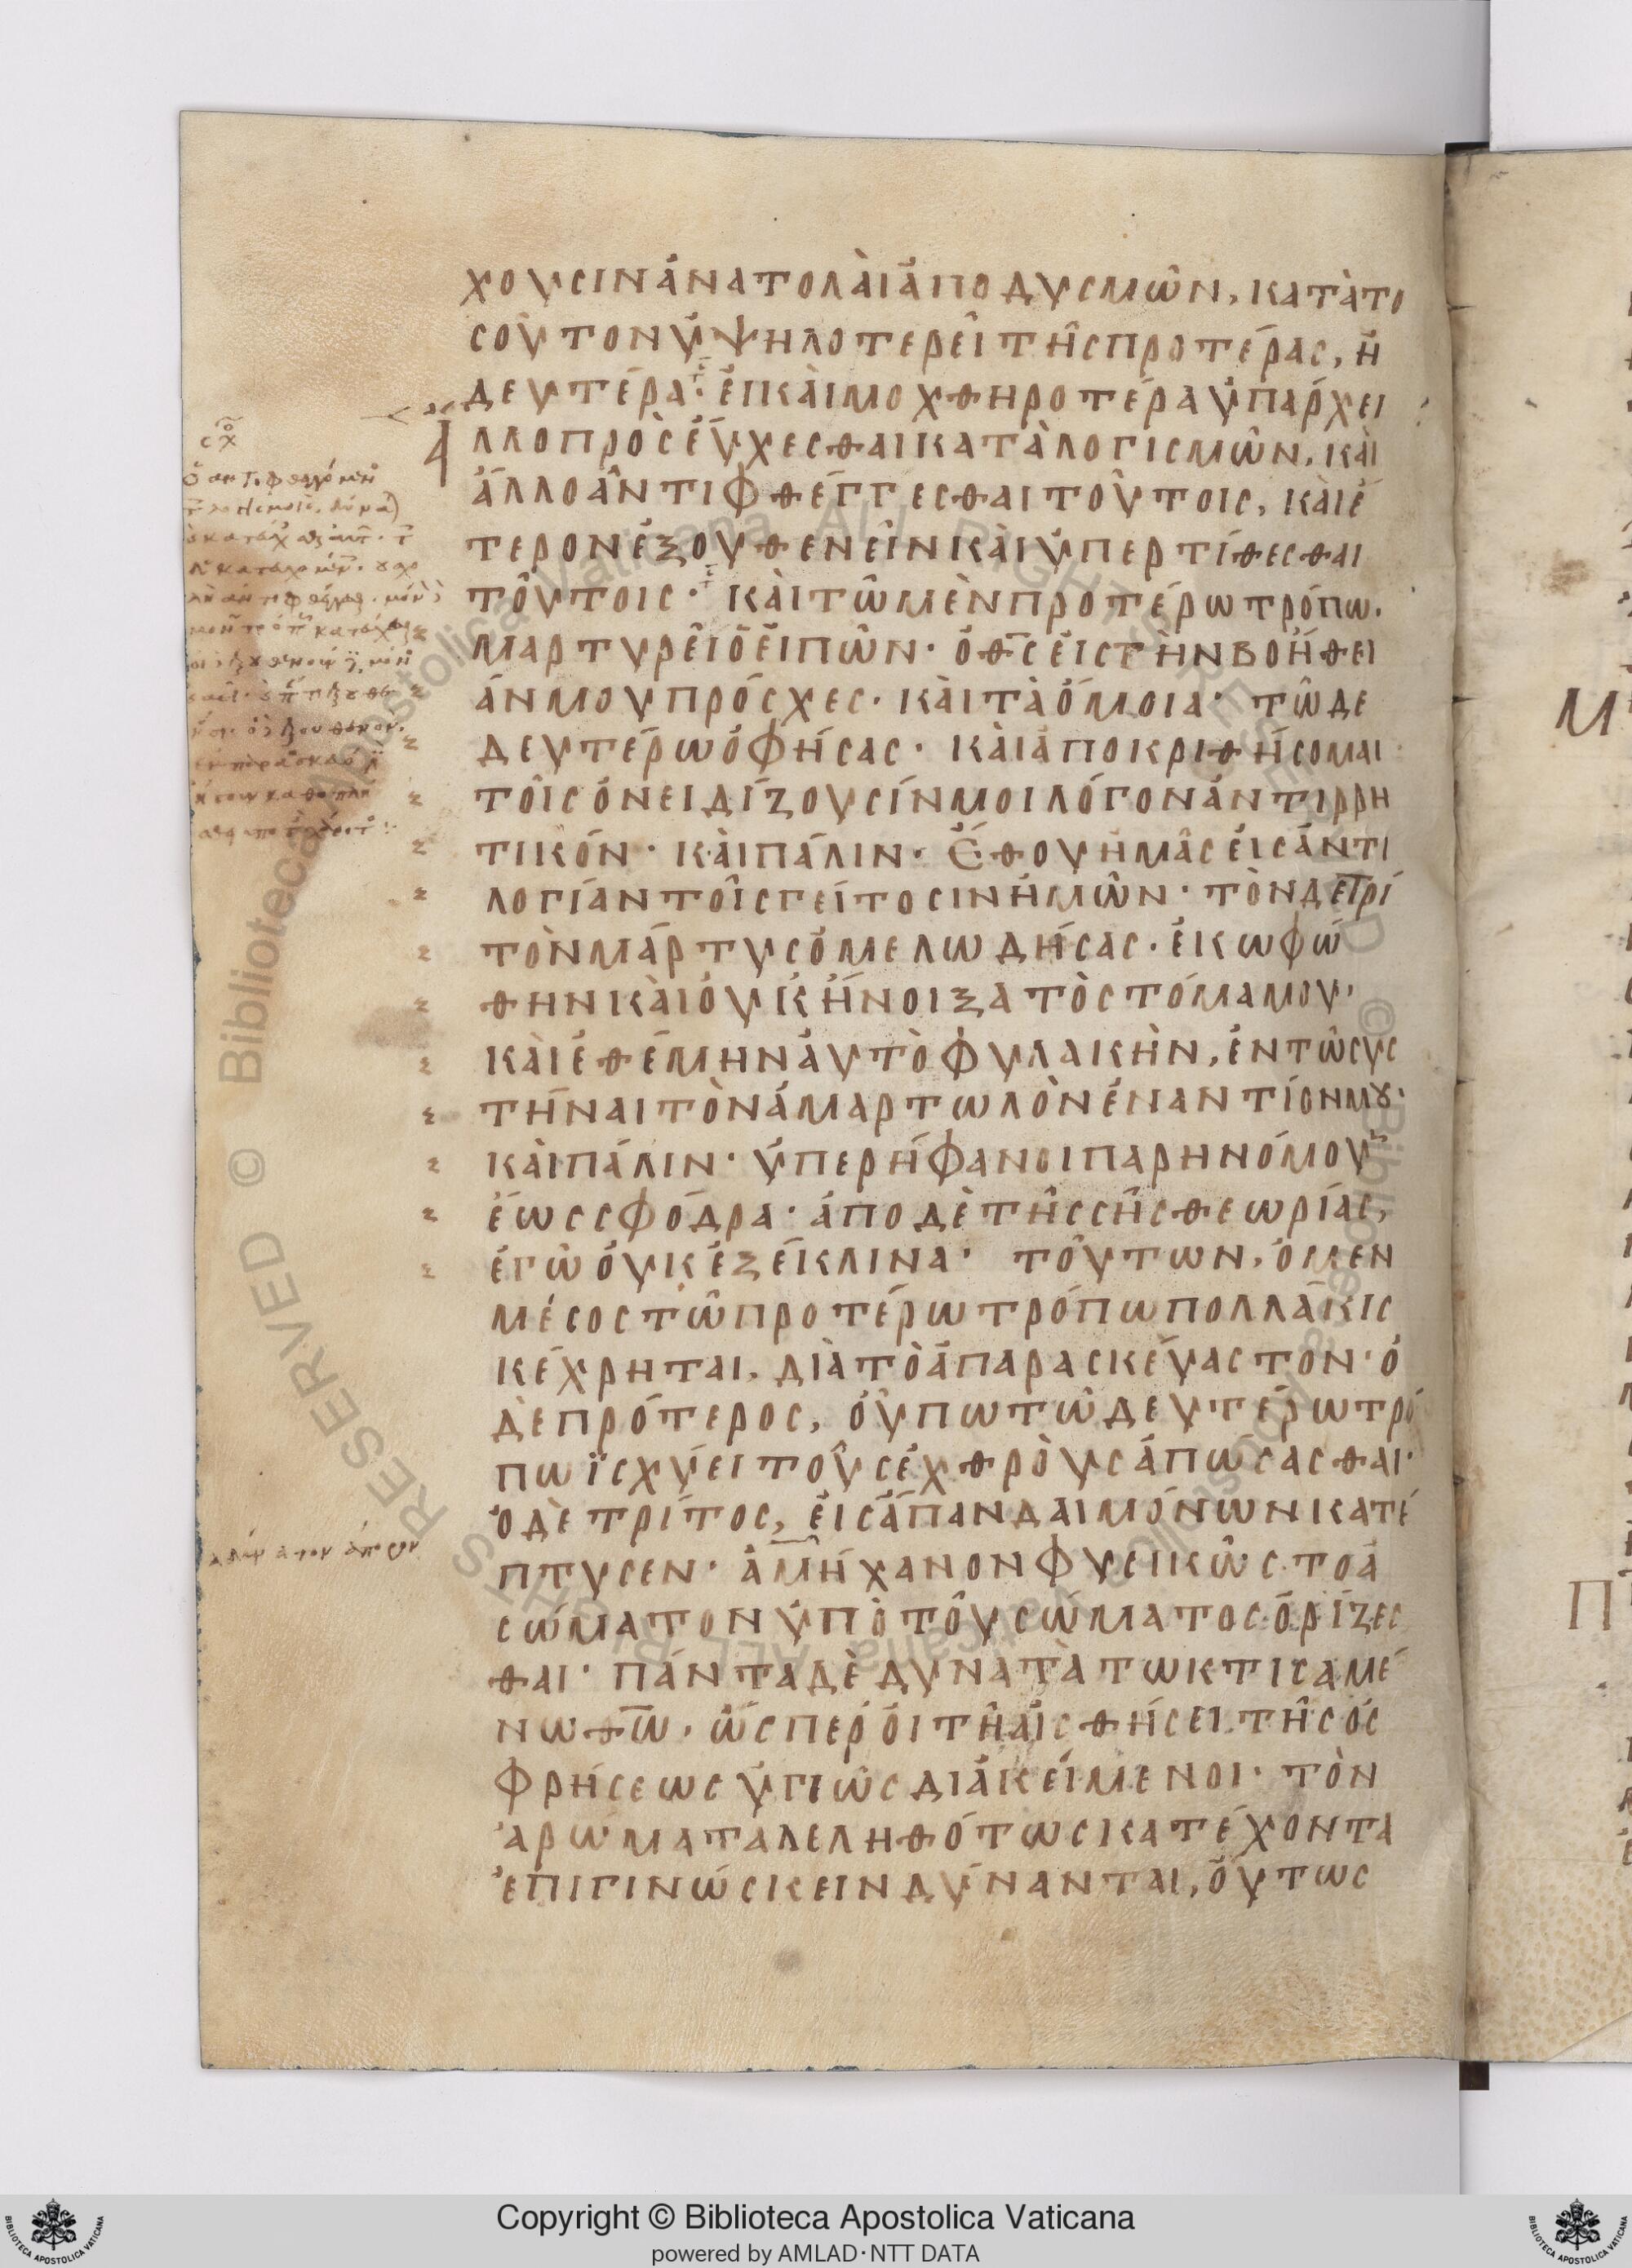 χουσιν ἀνατολὰι ἀπο δυσμῶν, κατὰ το
σοῦτον ὑψηλοτερεῖ τῆς προτέρας, ἡ
δευτέρα· εἰ καὶ μοχθηροτέρα ὑπάρχει
λλο προσεύχεσθαι κατὰ λογισμῶν, καὶ
ἄλλο ἀντιφθέγγεσθαι τούτοις, καὶ ἕ
τερον ἐξουθενεῖν καὶ ὑπερτίθεσθαι
τούτοις· καὶ τῶ μὲν προτέρω τρόπω.
μαρτυρεῖ ὁ εἰπῶν· ὁ θς εἰς τὴν βοήθει
άν μου πρόσχες· καὶ τὰ ὅμοια· τῶ δε
δευτέρω ὁ φήσας· καὶ ἀποκριθήσομαι
τοῖς ὀνειδίζουσίν μοι λόγον ἀντιρρη
τικόν· καὶ πάλιν· Ἔθου ἡμᾶς εἰς ἀντι
λογίαν τοῖς γείτοσιν ἡμῶν· τὸν δε τρί
τον μάρτυς ὁ μελωδήσας· ἐκωφώ
θην καὶ οὐκ ἤνοιξα τὸ στόμα μου·
καὶ ἐθέμην αὐτὸ φυλακὴν, ἐν τῶ συς
τήναι τὸν ἁμαρτωλὸν ἐναντίον μου·
καὶ πάλιν· ὑπερήφανοι παρηνόμουν
ἕως σφόδρα· ἀπο δὲ τῆς σῆς θεωρίας,
ἐγὼ οὐκ ἐξέκλινα· τούτων, ὁ μεν
μέσος τῶ προτέρω τρόπω πολλάκις
κέχρηται, διὰ τὸ ἀπαρασκέυαστον· ὁ
δὲ πρότερος, οὔπω τῶ δευτέρω τρό
πω ϊσχύει τοὺς ἐχθρὸυς ἀπώσασθαι·
ὁ δὲ τρίτος, εἰς ἅπαν δαιμόνων κατέ
πτυσεν· ἀμήχανον φυσικῶς το ἀ
σώματον ὑπὸ τοῦ σώματος ὁρίζες
θαι· πάντα δὲ δυνατὰ τω κτισαμέ
νω θω· ὥσπερ ὁι τῆ αἰσθήσει τῆς ὀς
φρήσεως ὑγιῶς διακείμενοι· τὸν
ἀρώματα λεληθότως κατέχοντα
ἐπιγινώσκειν δύνανται, οὕτως
ἀδύνατον ἄπορον
Copyright © Biblioteca Apostolica Vaticana
powered by AMLAD·NTT DATA